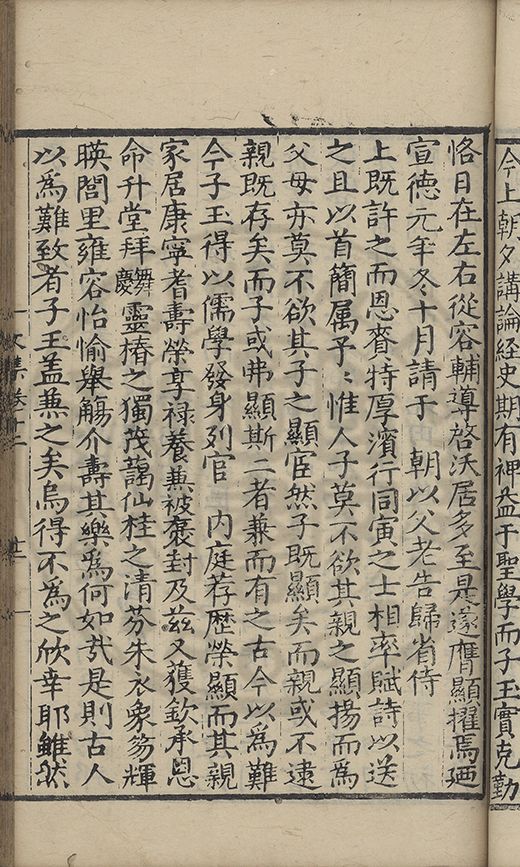 今上朝夕講論經史期有裨益于聖學而子玉實克勤
恪日在左右從容輔導啓沃居多至是遂膺顯擢焉廼
宣德元年冬十月請于 朝以父老告歸省侍
上既許之而恩賚特厚濱行同寅之士相率賦詩以送
之且以首簡属予〻惟人子莫不欲其親之顯揚而為
父母亦莫不欲其子之顯宦然子既顯矣而親或不逮
親既存矣而子或弗顯斯二者兼而有之古今以為難
今子玉得以儒學發身列官 内庭荐歷榮顯而其親
家居康寧耆壽榮享禄養兼被褒封及兹又獲欽承恩
命升堂拜舞慶靈椿之獨茂藹仙桂之清芬朱衣象笏輝
暎閭里雍容怡愉舉觴介壽其樂為何如哉是則古人
以為難致者子玉盖兼之矣烏得不為之欣幸耶雖然
文集卷十二
廿一